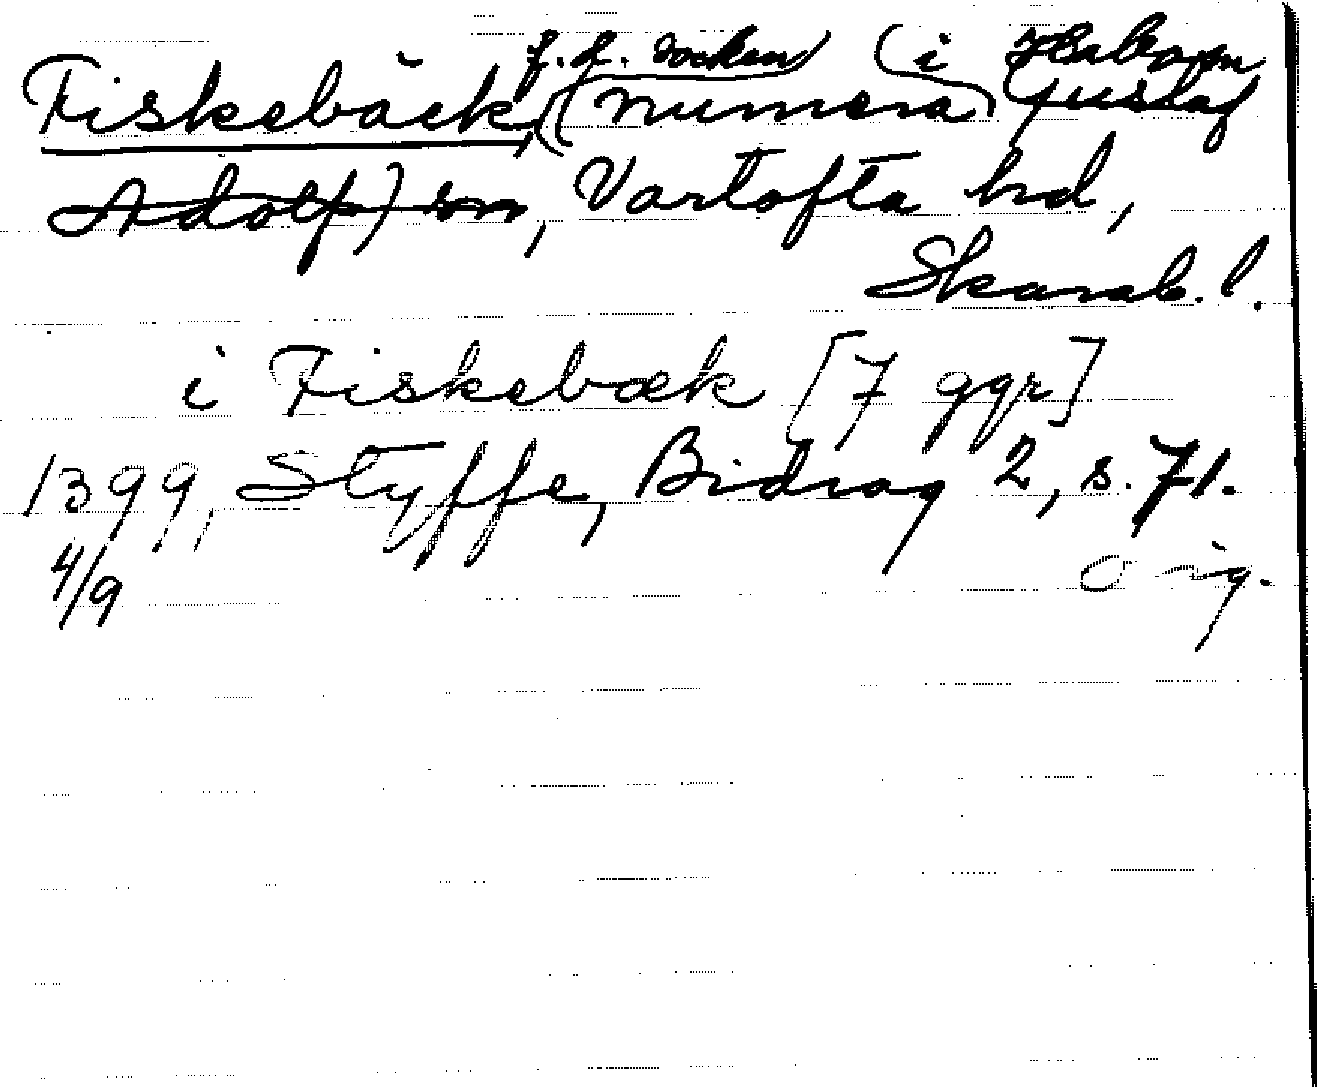 f. d. socken (i Habom
Fiskebäck, (numera) Gustaf
Adolf) sn, Vartofta hd,
Skarab. l.
i Fiskebæk [7 ggr]
1399, Styffe, Bidrag 2, s. 71.
4/9 Orig.